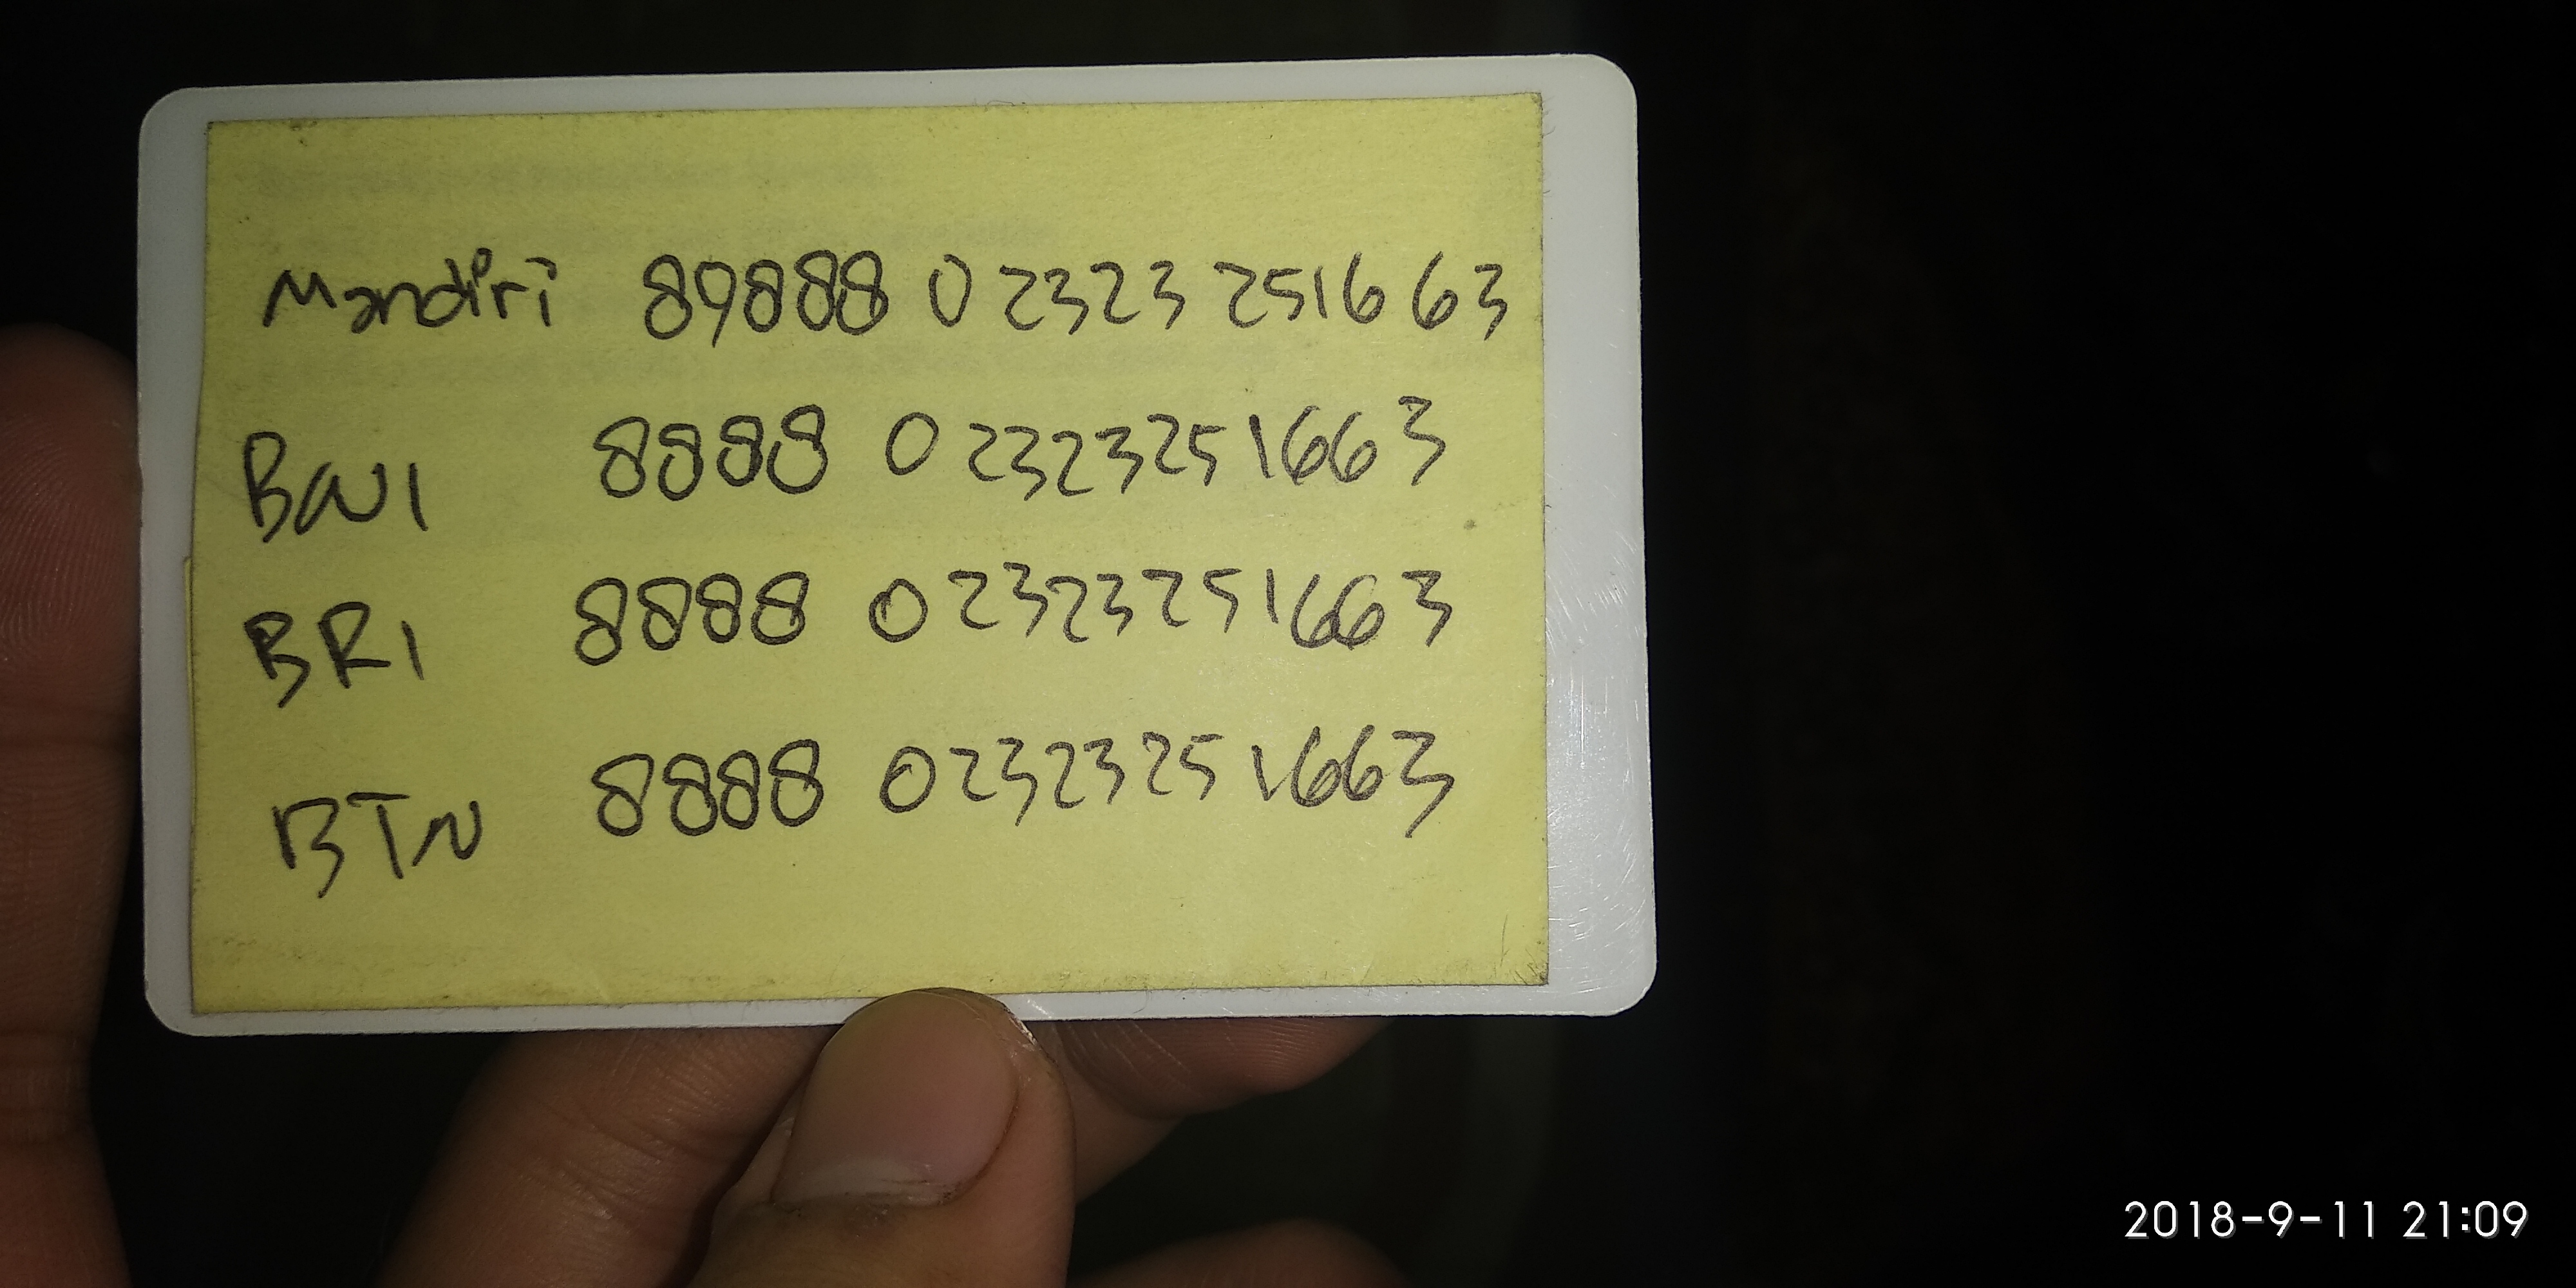 Mandiri 89888 0 2323 2516 63
BNI 8888 0 2323251663
BRI 8888 0 2323251663
BTN 8888 0 2323251663
2018-9-11 21:09